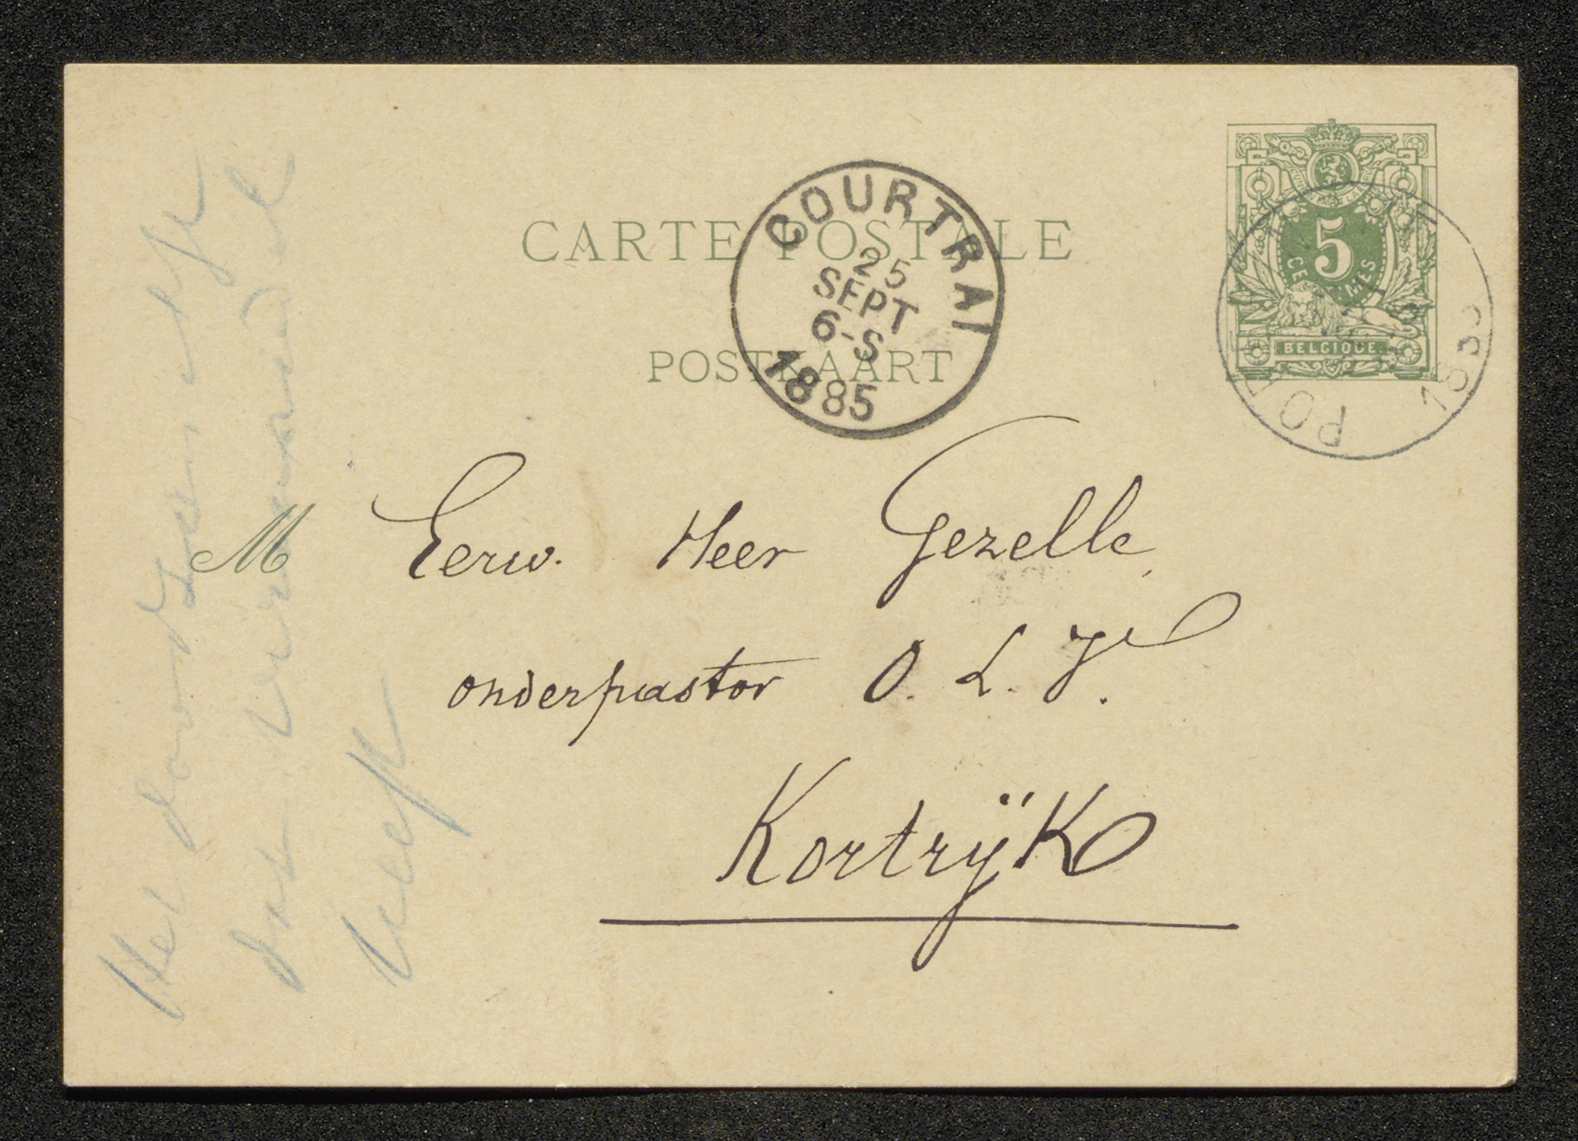 CARTE POSTALE
POSTKAART
COURTRAI
25
SEPT
6-S
1885
5
CENTIMES
BELGIQUE
M Eerw. Heer Gezelle
onderpastor O. L. V.
Kortrÿk
Het
dat
heeft